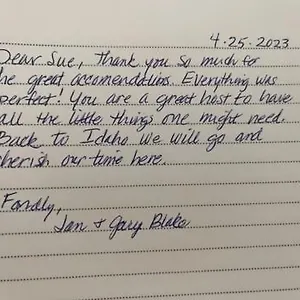 4-25-2023
Dear Sue, Thank you so much for
the great accomendations. Everything was
perfect! You are a great host to have
all the little things one might need.
Back to Idaho we will go and
cherish our time here.
Fondly,
Jan + Gary Blake